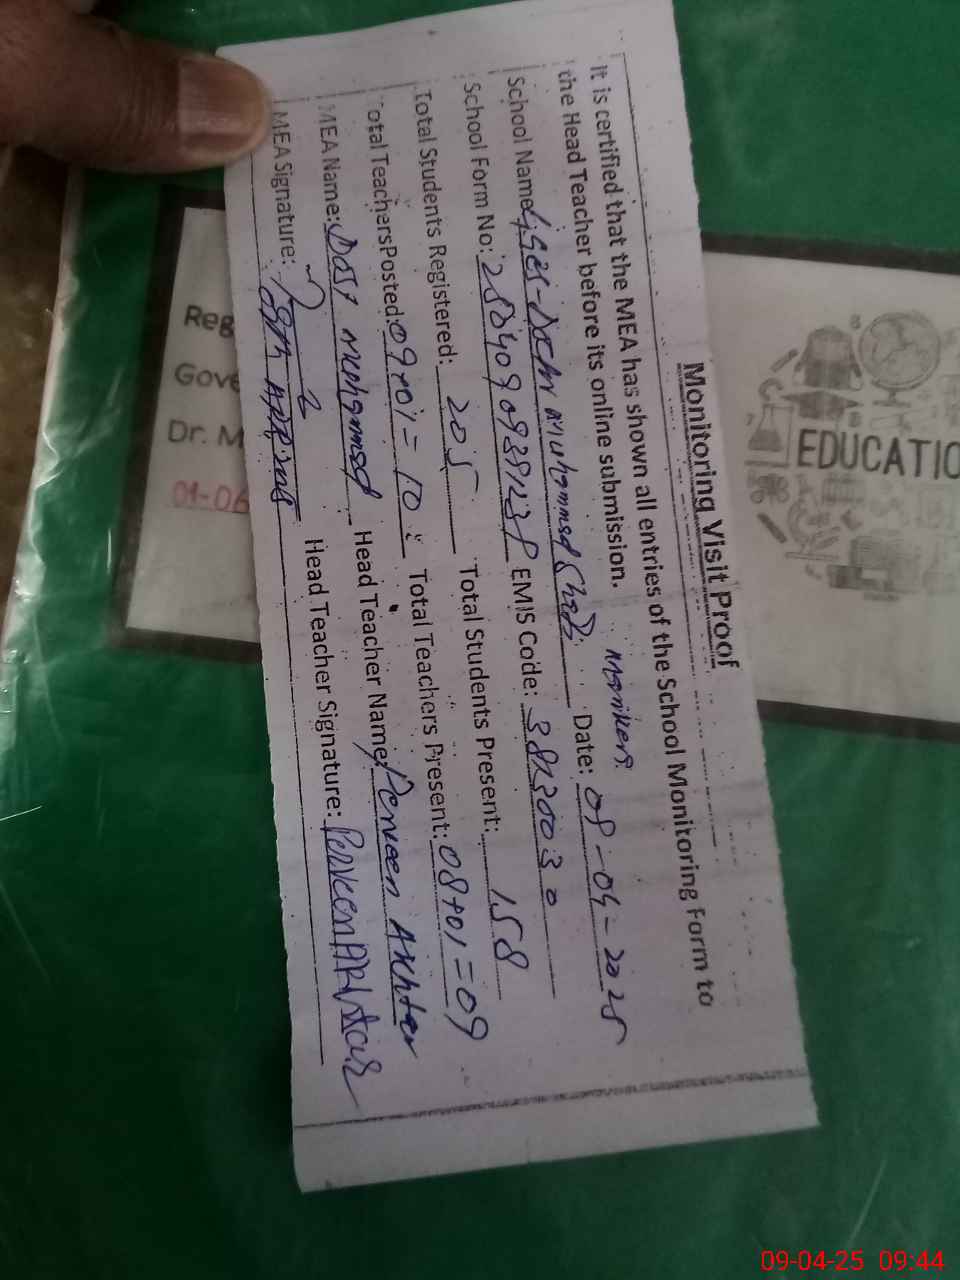 Monitoring Visit Proof
It is certified that the MEA has shown all entries of the School Monitoring Form to
the Head Teacher before its online submission.
School Name: Muhammad Date: 09-04-2025
School Form No: EMIS Code: 38230030
Total Students Registered: 205 Total Students Present: 158
Total Teachers Posted: 09+01=10 Total Teachers Present: 08+01=09
MEA Name: Dost Muhammad Head Teacher Name: Perveen Akhter
MEA Signature: Head Teacher Signature: Perveen Akhtar
Reg
Gove
Dr. M
01-06
EDUCATIO
09-04-25 09:44